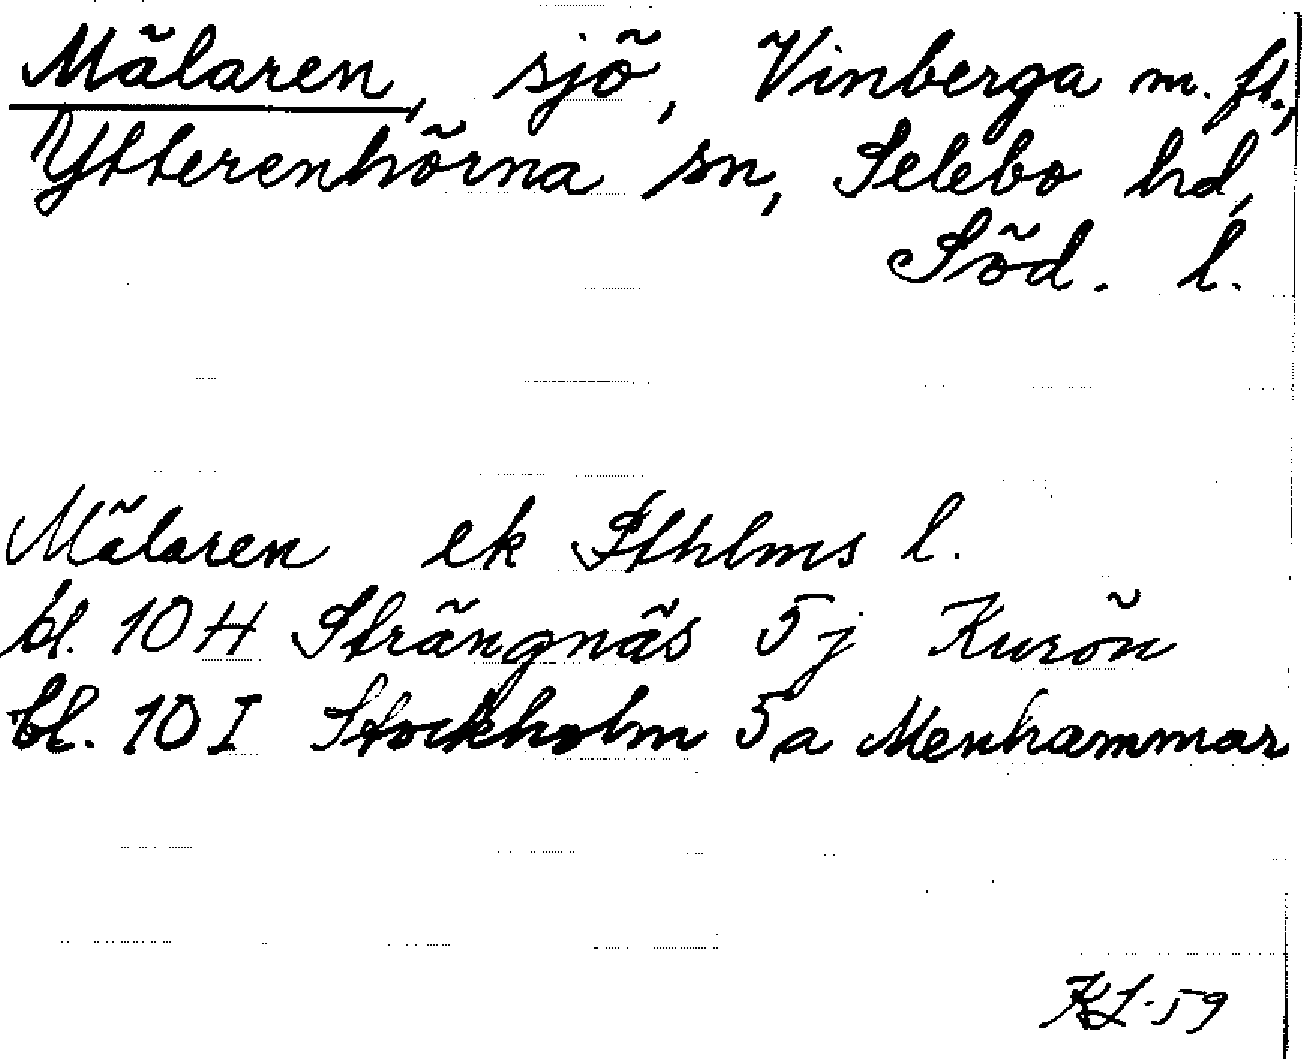 Mälaren, sjö, Vinberga m. fl.,
Ytterenhörna sn, Selebo hd,
Söd. l.
Mälaren ek Sthlms l.
bl. 10 H Strängnäs 5 j Kurön
bl. 10 I Stockholm 5 a Menhammar
KL-59